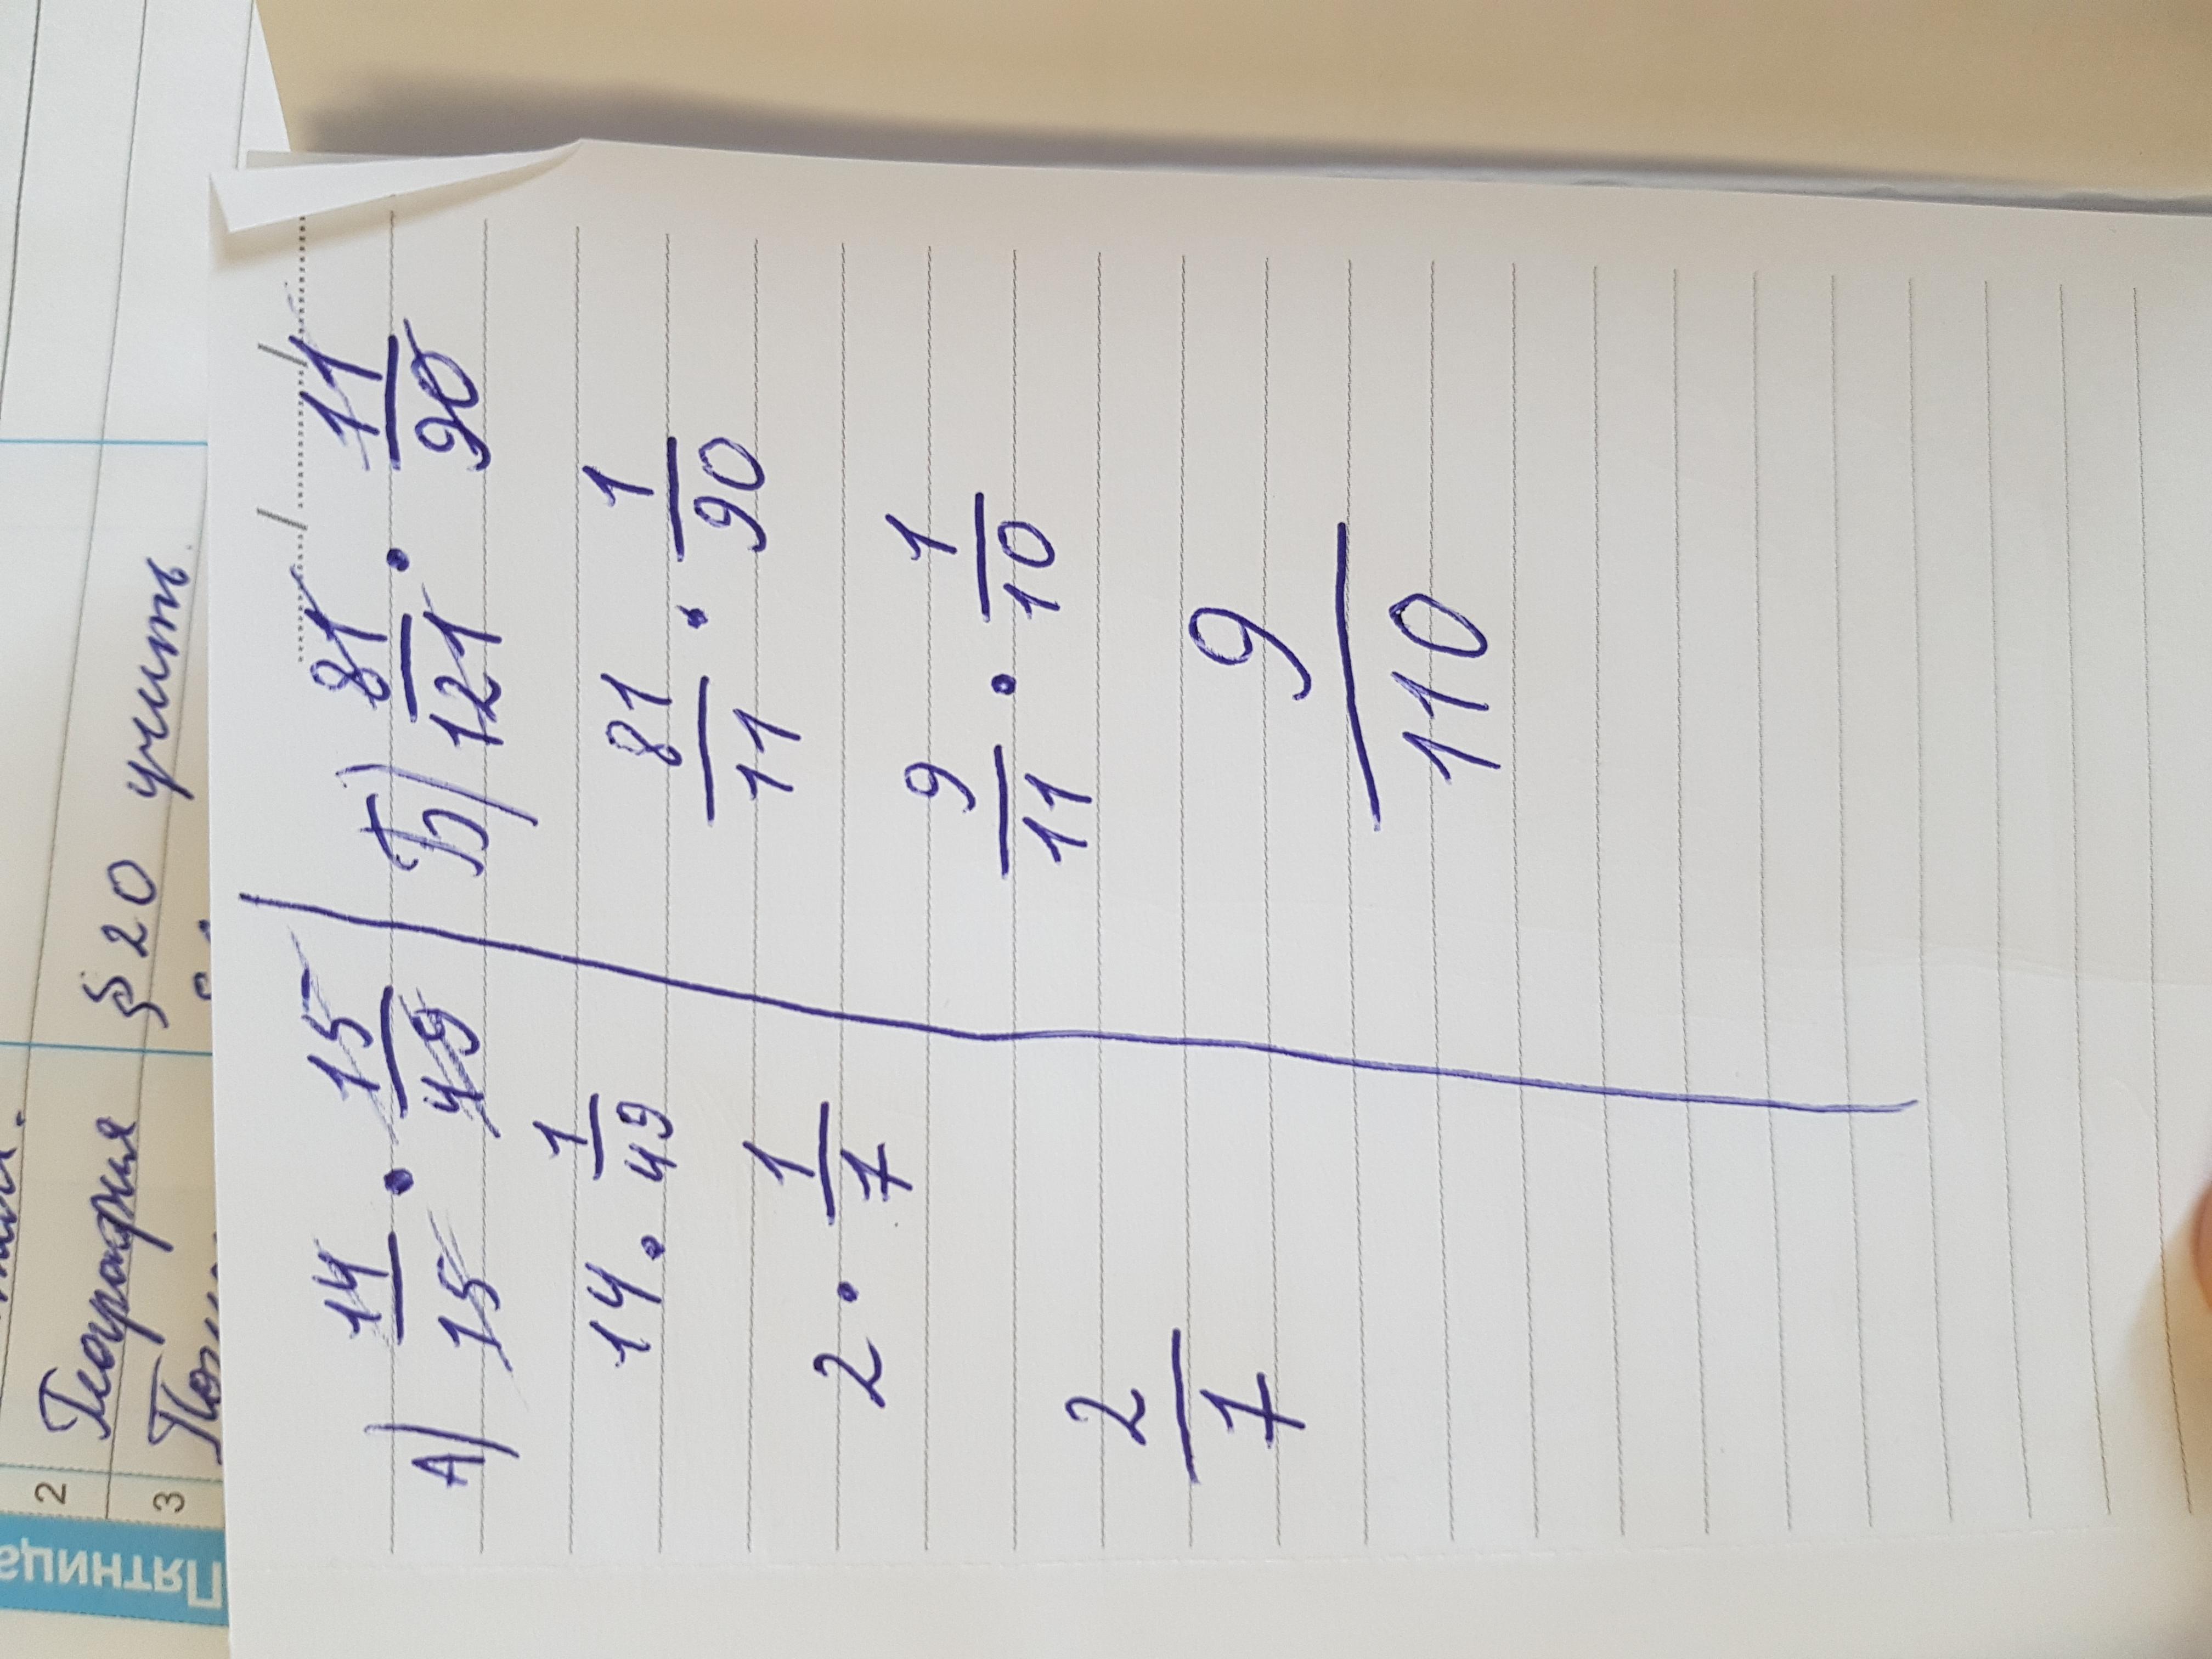 Пятница
2 География § 20 учить
3
А) 14/15 · 15/49
14 · 1/49
2 · 1/7
2/7
Б) 81/121 · 11/90
81/11 · 1/90
9/11 · 1/10
9/110